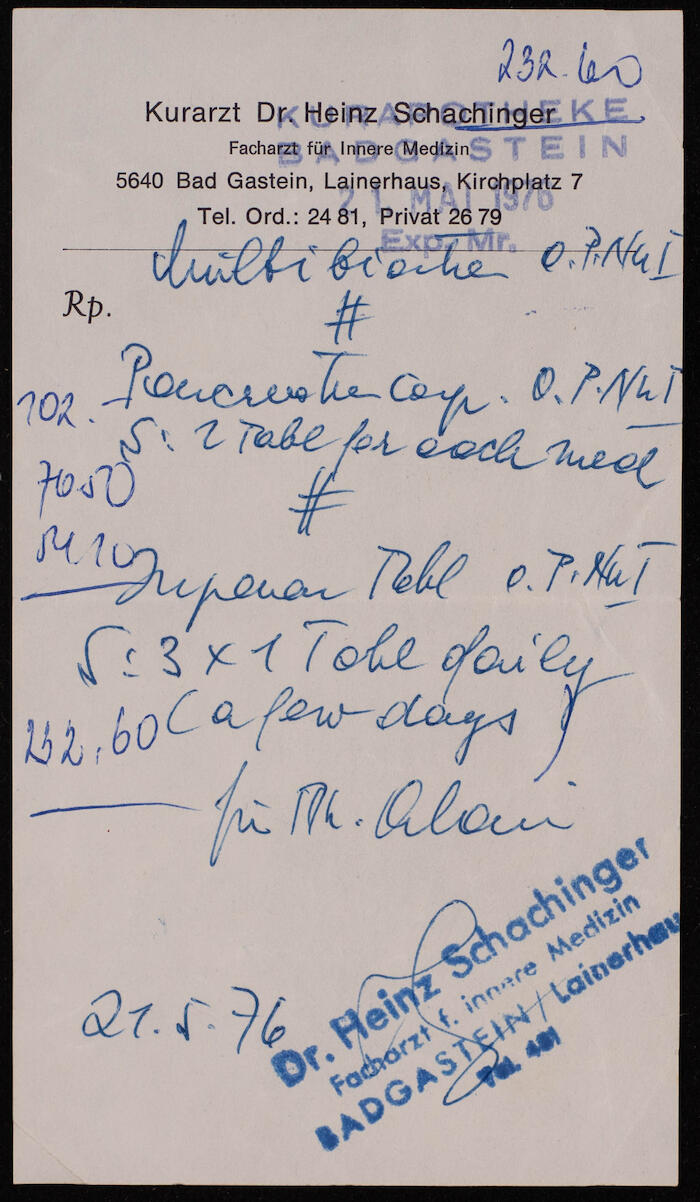 232.60
Kurarzt Dr. Heinz Schachinger
KURAPOTHEKE
Facharzt für Innere Medizin
BADGASTEIN
5640 Bad Gastein, Lainerhaus, Kirchplatz 7
21. MAI 1976
Tel. Ord.: 24 81, Privat 26 79
Exp. Mr.
O.P. No I
Rp.
#
102.- Pancreatin comp. O.P. No I
S: 2 Tabl for each meal
7650
#
5410
Tabl O.P. No I
S: 3 x 1 Tabl daily
(a few days)
232.60
für
21.5.76
Dr. Heinz Schachinger
Facharzt f. innere Medizin
BADGASTEIN, Lainerhau
Tel. 481